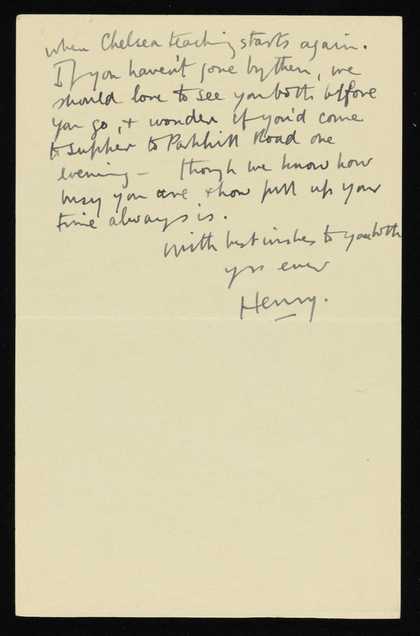 when Chelsea teaching starts again.
If you haven't gone by then, we
should love to see you both before
you go, + wonder if you'd come
to supper to Parkhill Road one
evening – though we know how
busy you are + how full up your
time always is.
With best wishes to you both
yrs ever
Henry.